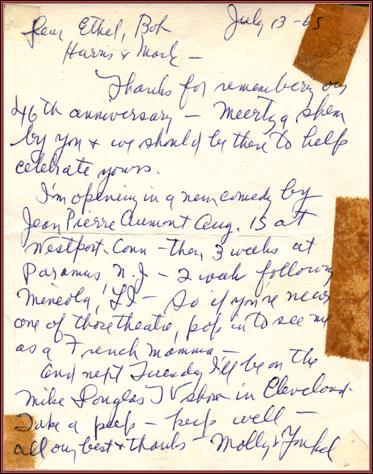 July 13-65
Dear Ethel, Bob
Harris & Mark -
Thanks for remembering our
46th anniversary -
by you & we should be there to help
celebrate yours.
I'm opening in a new comedy by
Jean Pierre Aumont Aug. 15 at
Westport Conn - then 3 weeks at
Paramus, N.J - 2 week following
Mineola, LI - So if you're near
one of those theatre, pop in to see me
as a French Momma -
and next Tuesday I'll be on the
Mike Douglas TV show in Cleveland.
Take a peep - keep well -
all our best & thanks - Molly &